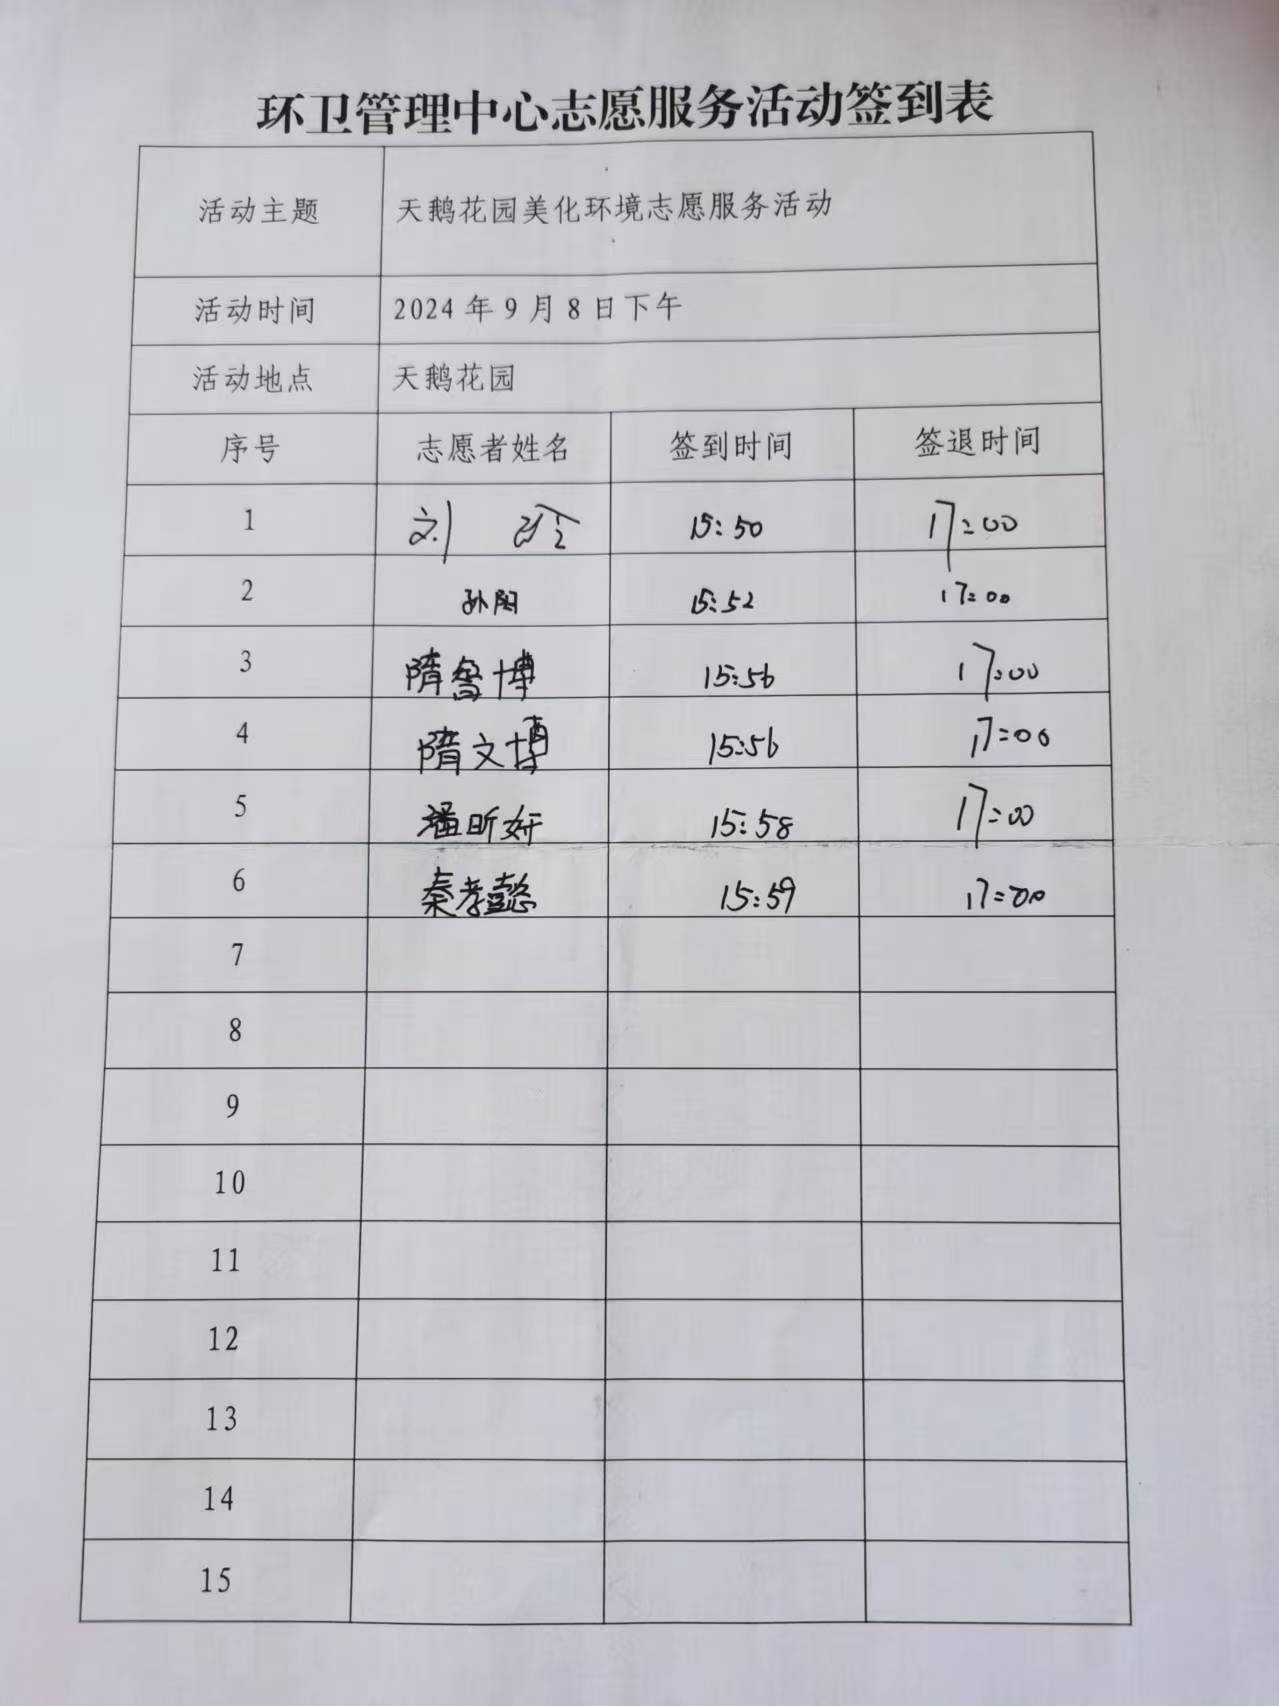 环卫管理中心志愿服务活动签到表
活动主题 天鹅花园美化环境志愿服务活动
活动时间 2024年9月8日下午
活动地点 天鹅花园
序号 志愿者姓名 签到时间 签退时间
1 刘 15:50 17:00
2 孙阳 15:52 17:00
3 隋鲁博 15:56 17:00
4 隋文博 15:56 17:00
5 潘昕妍 15:58 17:00
6 秦孝懿 15:59 17:00
7
8
9
10
11
12
13
14
15